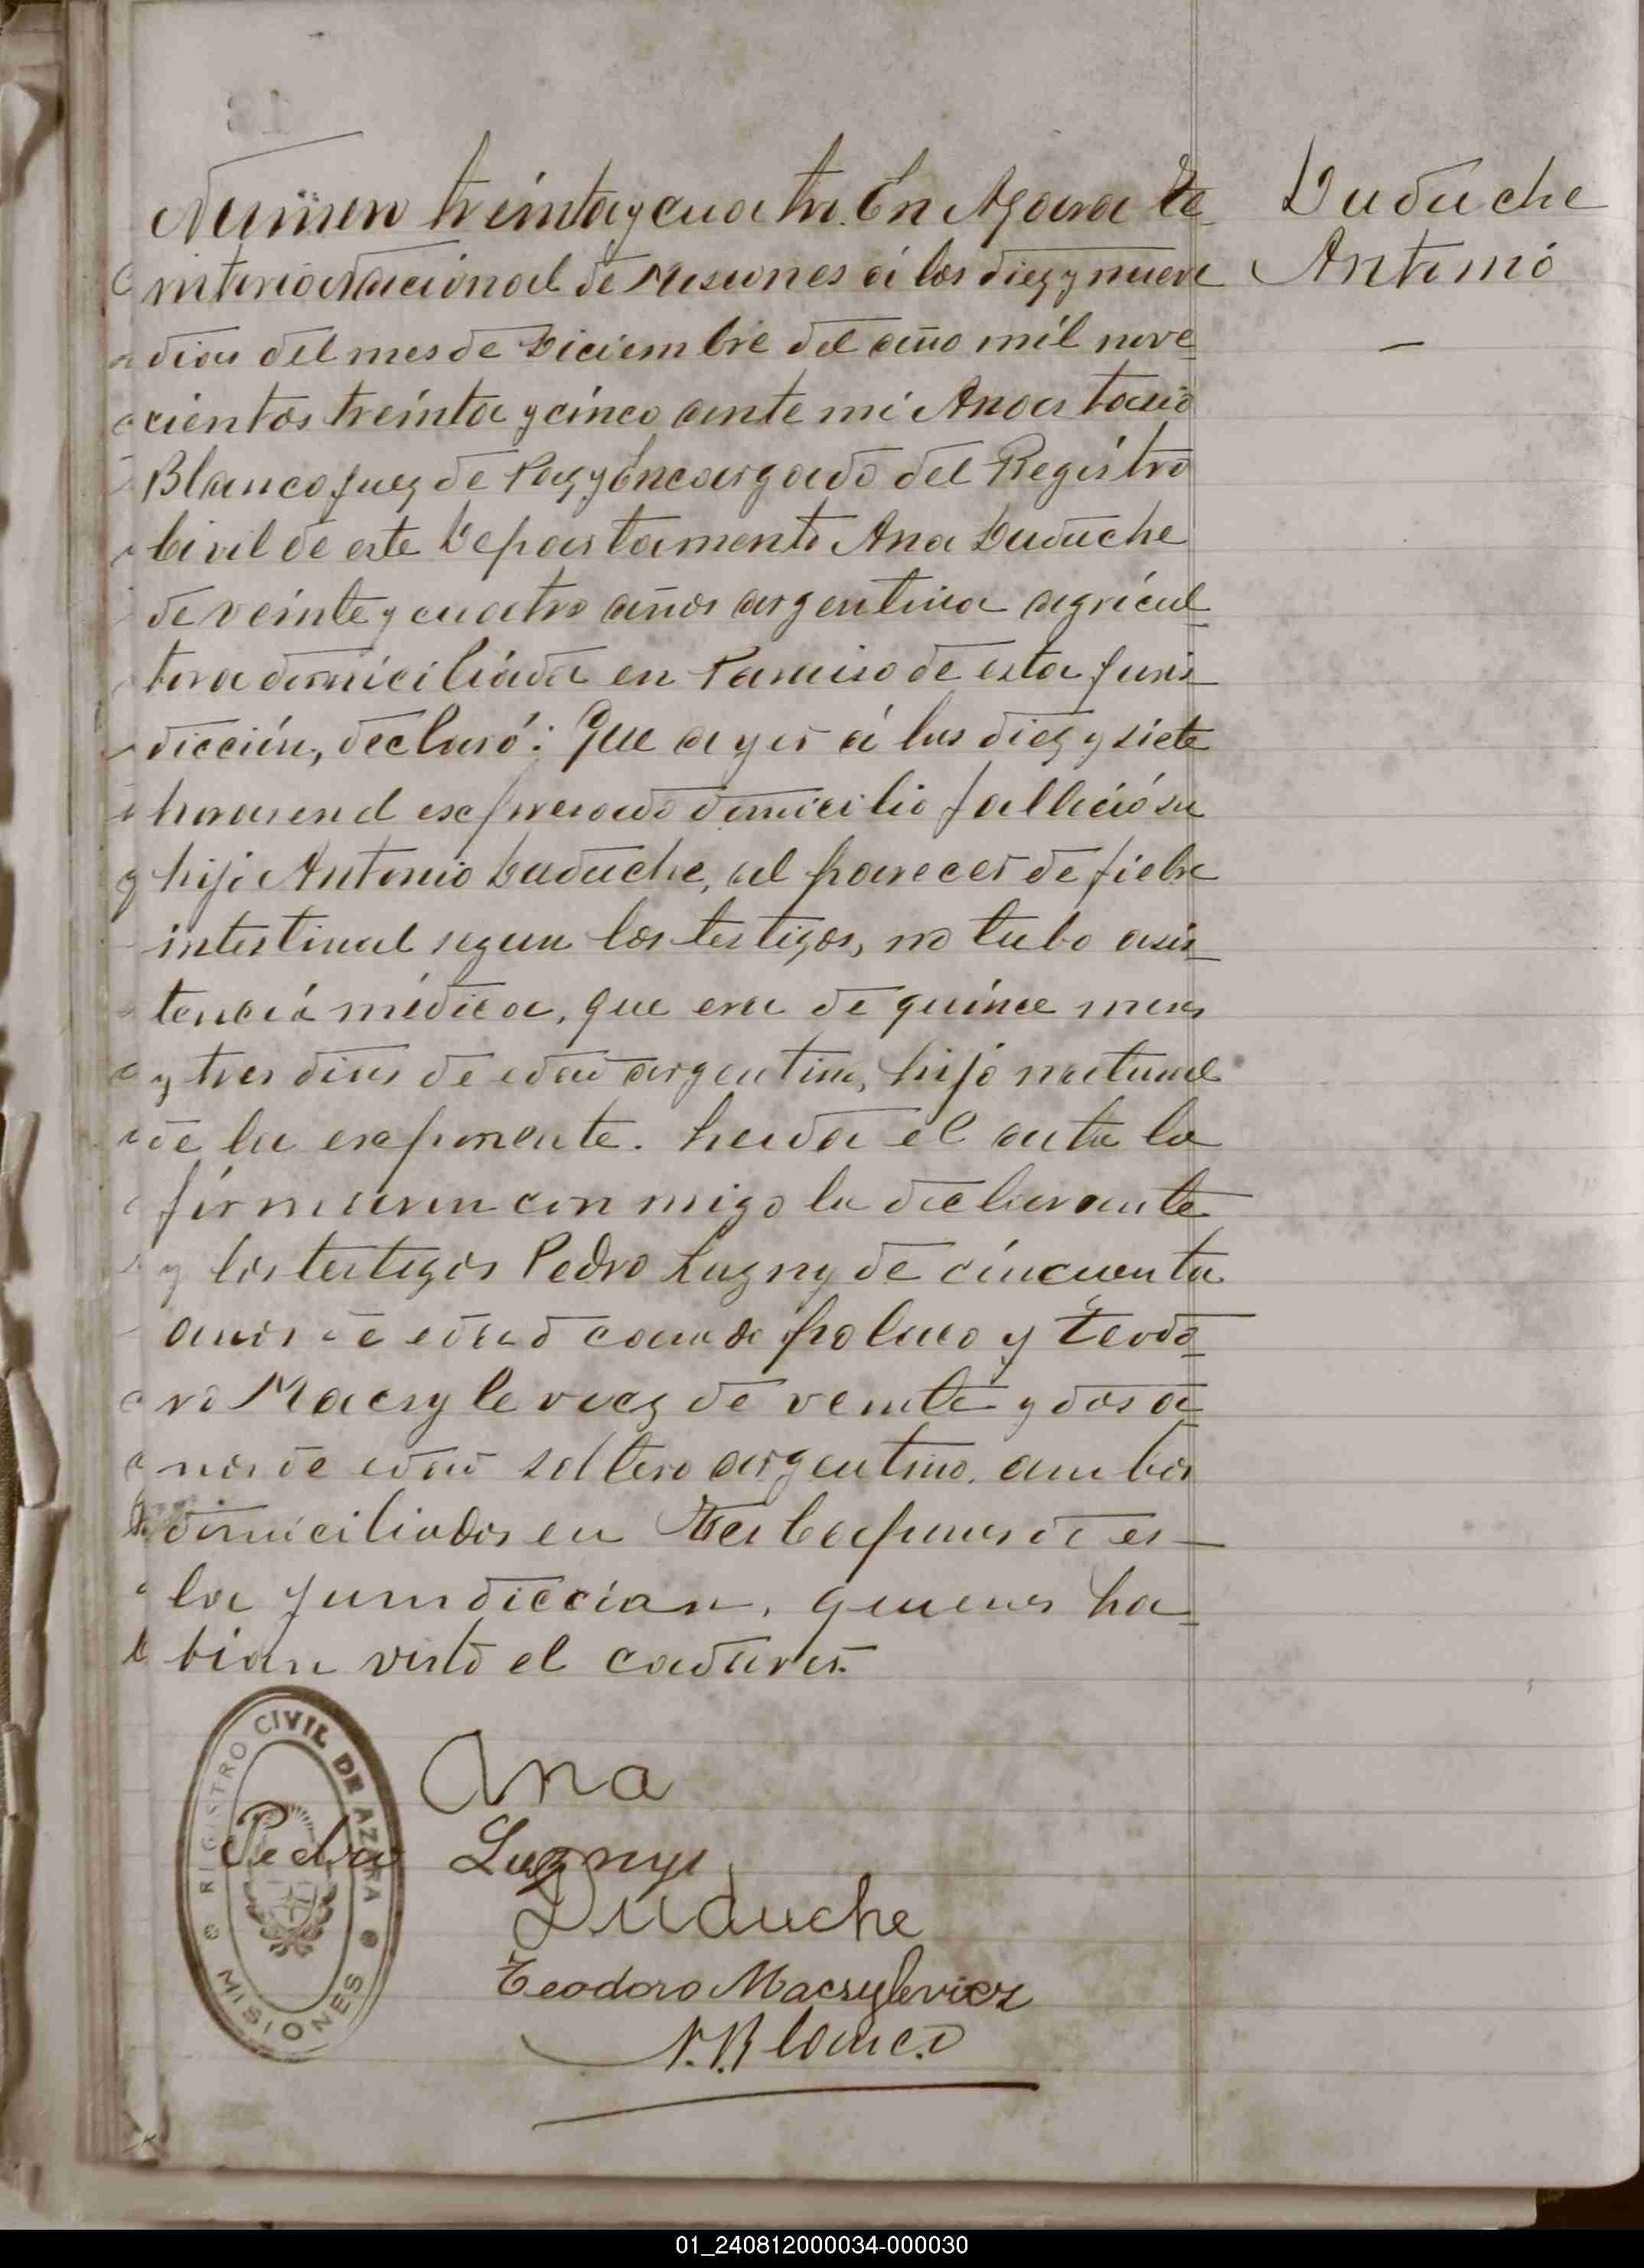 Duduche
Antonio
Numero treinta y cuatro. En Azara Te-
rritorio Nacional de Misiones á los diez y nueve
dias del mes de Diciembre del año mil nove-
cientos treinta y cinco ante mi Anastasio
Blanco Juez de Paz y Encargado del Registro
Civil de este Departamento Ana Duduche
de veinte y cuatro años argentina agricul-
tora domiciliada en Paraiso de esta juris-
dicción, declaró: Que ayer á las diez y siete
horas en el expresado domicilio falleció su
hijo Antonio Duduche, al parecer de fiebre
intestinal segun los testigos, no tubo asis-
tencia médica, que era de quince meses
y tres dias de edad argentino, hijo natural
de la exponente. Leida el acta la
firmaron conmigo la declarante
y los testigos Pedro Lugny de cincuenta
anos de edad casado polaco y Teodo-
ro Macsylevicz de veinte y dos a-
nos de edad soltero argentino. ambos
domiciliados en de es-
ta jurisdiccion, quienes ha-
bian visto el cadaver.
REGISTRO CIVIL DE AZARA
MISIONES
Ana
Pedro Lugnyi
Duduche
Teodoro Macsylevicz
A. Blanco
01_240812000034-000030